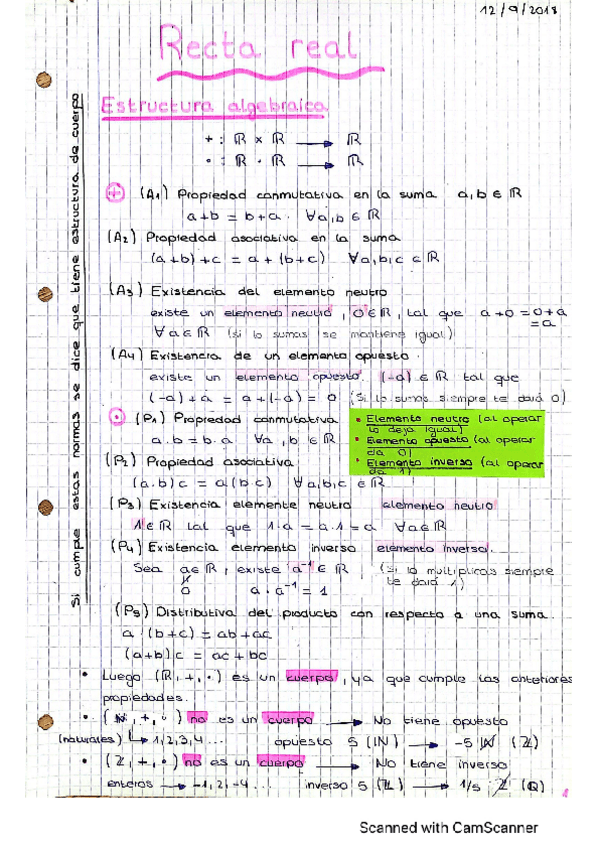 12/9/2018
Recta real
Estructura algebraica
+ : ℝ × ℝ → ℝ
• : ℝ · ℝ → ℝ
Si cumple estas normas se dice que tiene estructura de cuerpo
+ (A1) Propiedad conmutativa en la suma a,b ∈ ℝ
a+b = b+a. ∀a,b ∈ ℝ
(A2) Propiedad asociativa en la suma
(a+b)+c = a+(b+c) ∀a,b,c ∈ ℝ
(A3) Existencia del elemento neutro
existe un elemento neutro, 0∈ℝ, tal que a+0=0+a
=a
∀a∈ℝ (si lo sumas se mantiene igual)
(A4) Existencia de un elemento opuesto.
existe un elemento opuesto. (-a) ∈ ℝ tal que
(-a)+a = a+(-a) = 0 (Si lo sumas siempre te dará 0)
· (P1) Propiedad conmutativa
a.b = b.a ∀a,b ∈ ℝ
• Elemento neutro (al operar
lo deja igual)
• Elemento opuesto (al operar
da 0)
• Elemento inverso (al operar
da 1)
(P2) Propiedad asociativa
(a.b)c = a(b.c) ∀a,b,c ∈ ℝ
(P3) Existencia elemente neutro elemento neutro
1∈ℝ tal que 1·a = a·1 = a ∀a∈ℝ
(P4) Existencia elemento inverso elemento inverso.
Sea a∈ℝ, existe a⁻¹ ∈ ℝ (si lo multiplicas siempre
te dará 1)
0 a·a⁻¹ = 1
(P5) Distributiva del producto con respecto a una suma.
a·(b+c) = ab+ac
(a+b)c = ac+bc
• Luego (ℝ,+,·) es un cuerpo, ya que cumple las anteriores
propiedades.
• (ℕ,+,·) no es un cuerpo → No tiene opuesto
(naturales) → 1,2,3,4... opuesto 5 (ℕ) → -5 ℕ (ℤ)
• (ℤ,+,·) no es un cuerpo → No tiene inverso
enteros → -1,2,-4... inverso 5 (ℤ) → 1/5 ℤ (ℚ)
1
Scanned with CamScanner